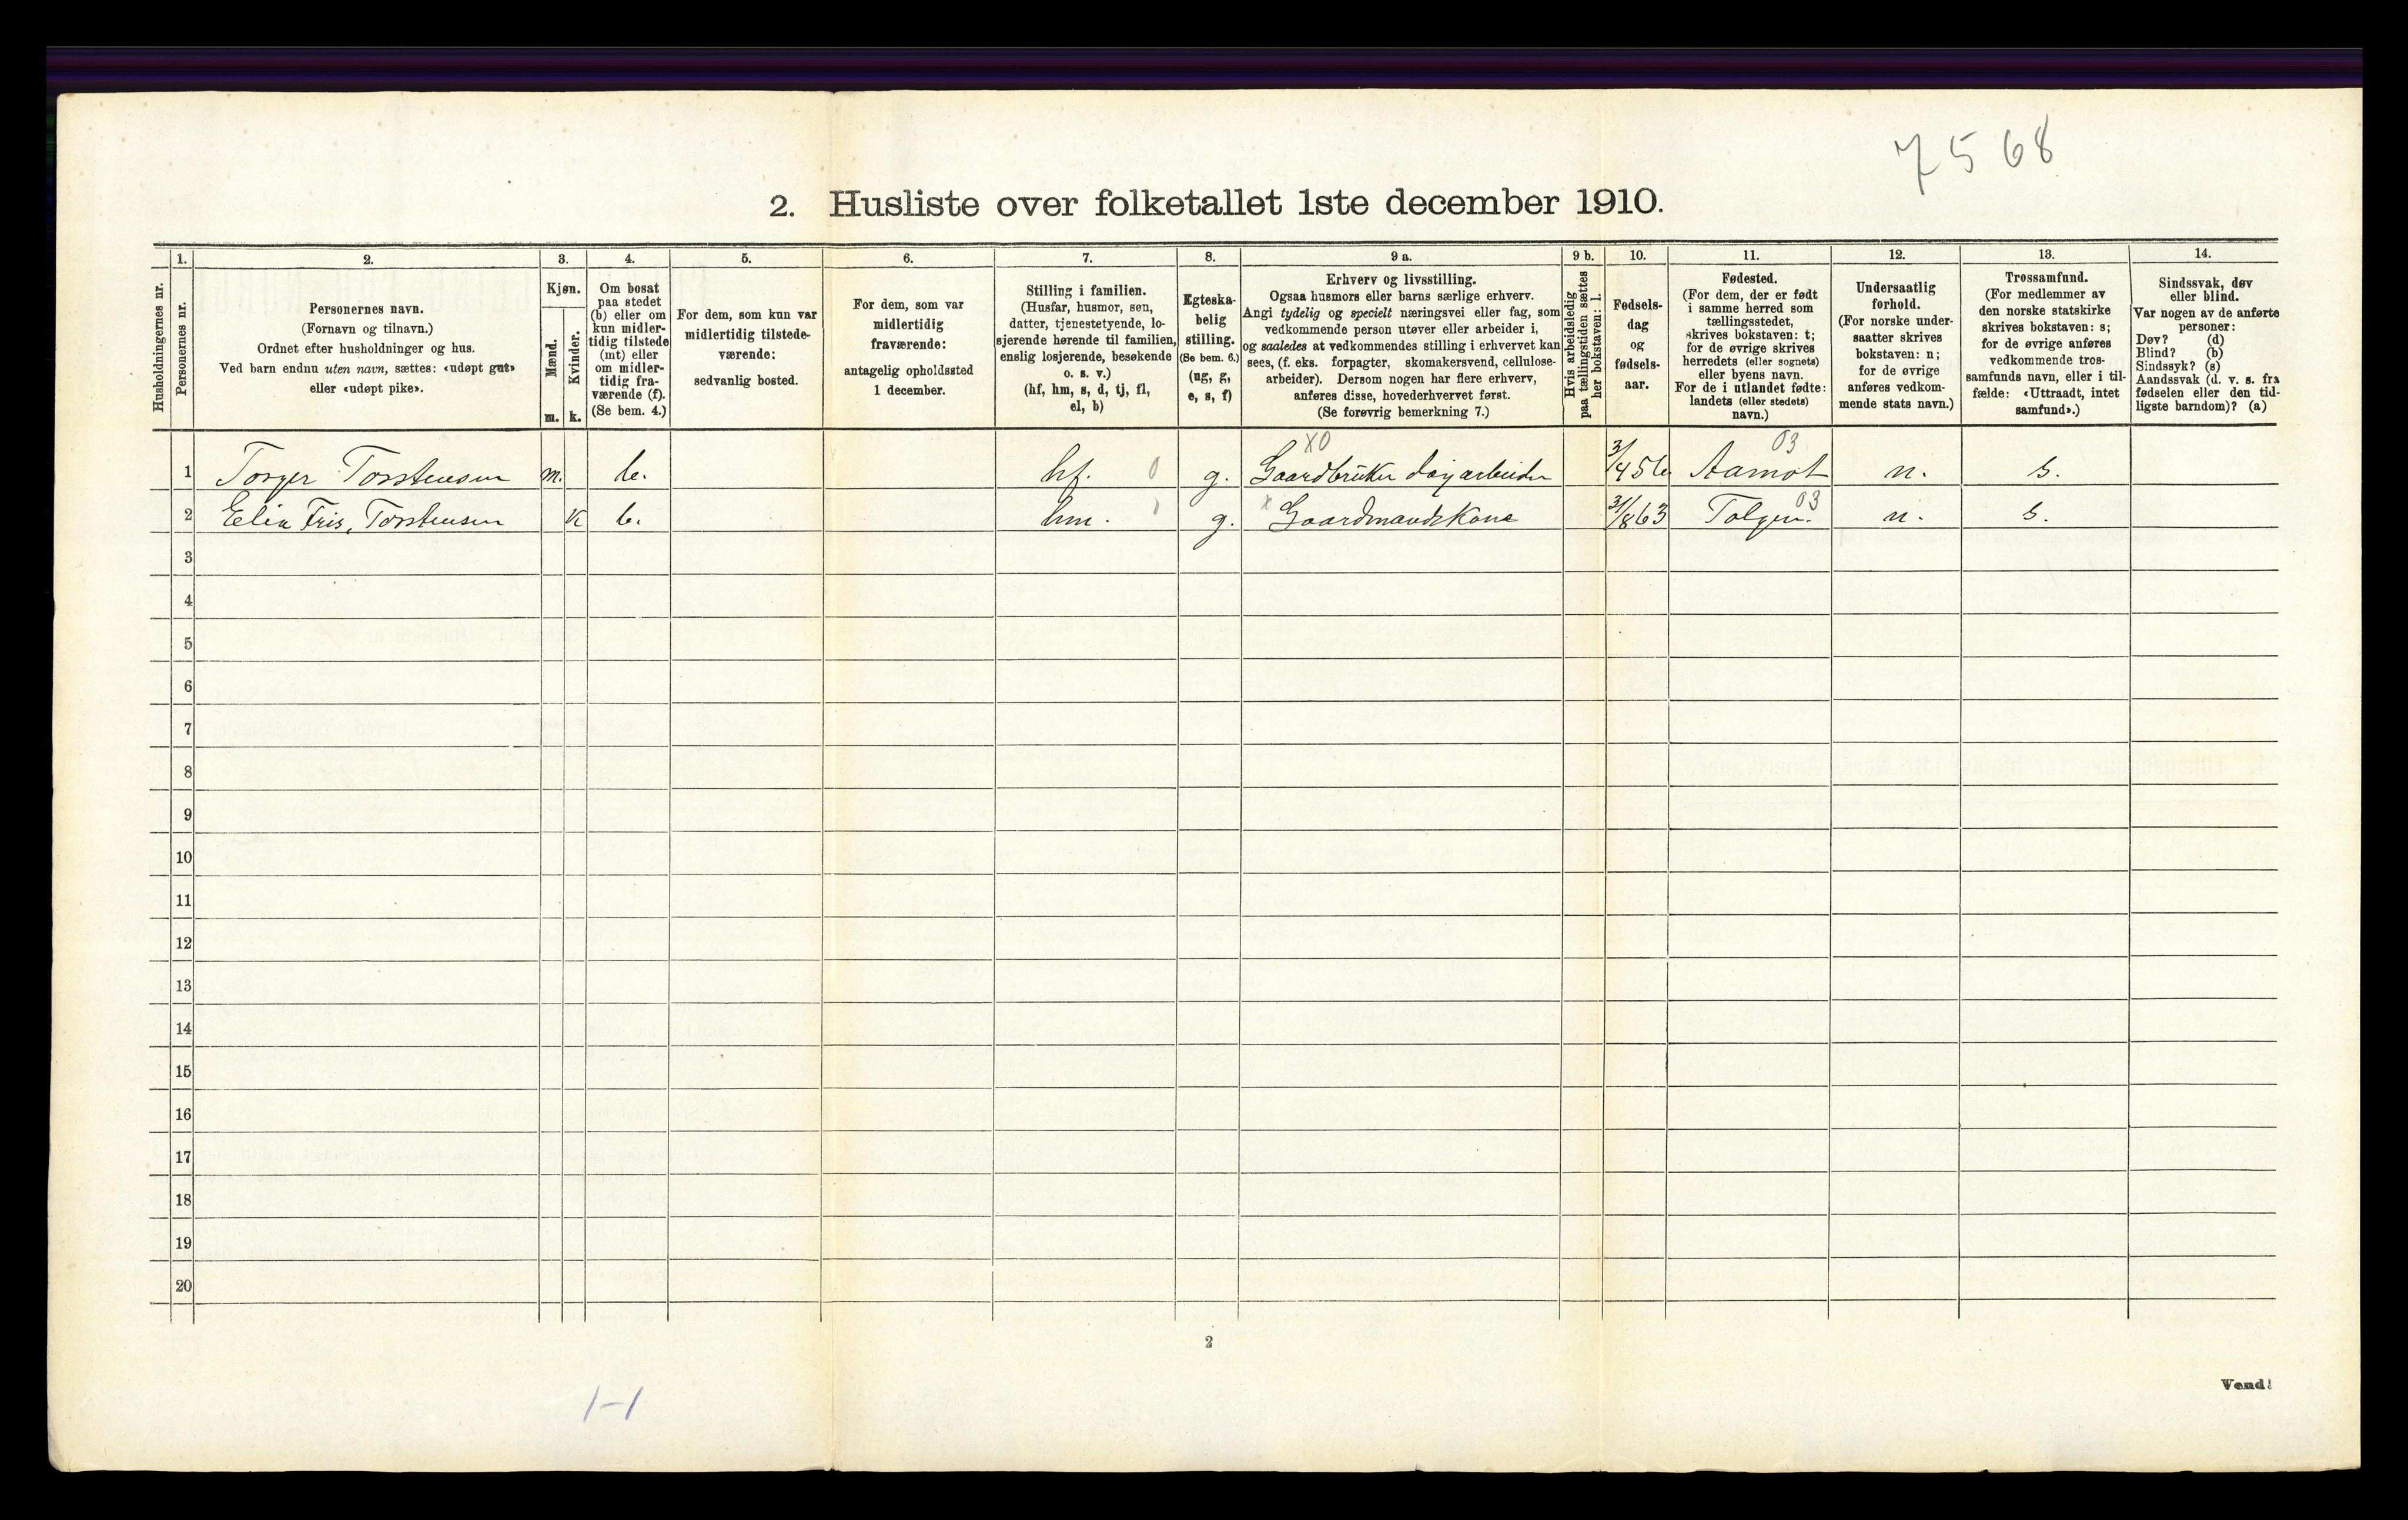 7568
2. Husliste over folketallet 1ste december 1910.
1. 2. 3. 4. 5. 6. 7. 8. 9 a. 9 b. 10. 11. 12. 13. 14.
Husholdningernes nr.
Personernes nr.
Personernes navn.
(Fornavn og tilnavn.)
Ordnet efter husholdninger og hus.
Ved barn endnu uten navn, sættes: «udøpt gut»
eller «udøpt pike».
Kjøn.
Mænd.
Kvinder.
m. k.
Om bosat
paa stedet
(b) eller om
kun midler-
tidig tilstede
(mt) eller
om midler-
tidig fra-
værende (f).
(Se bem. 4.)
For dem, som kun var
midlertidig tilstede-
værende:
sedvanlig bosted.
For dem, som var
midlertidig
fraværende:
antagelig opholdssted
1 december.
Stilling i familien.
(Husfar, husmor, søn,
datter, tjenestetyende, lo-
sjerende hørende til familien,
enslig losjerende, besøkende
o. s. v.)
(hf, hm, s, d, tj, fl,
el, b)
Egteska-
belig
stilling.
(Se bem. 6.)
(ug, g,
e, s, f)
Erhverv og livsstilling.
Ogsaa husmors eller barns særlige erhverv.
Angi tydelig og specielt næringsvei eller fag, som
vedkommende person utøver eller arbeider i,
og saaledes at vedkommendes stilling i erhvervet kan
sees, (f. eks. forpagter, skomakersvend, cellulose-
arbeider). Dersom nogen har flere erhverv,
anføres disse, hovederhvervet først.
(Se forøvrig bemerkning 7.)
Hvis arbeidsledig
paa tællingstiden sættes
her bokstaven: l.
Fødsels-
dag
og
fødsels-
aar.
Fødested.
(For dem, der er født
i samme herred som
tællingsstedet,
skrives bokstaven: t;
for de øvrige skrives
herredets (eller sognets)
eller byens navn.
For de i utlandet fødte:
landets (eller stedets)
navn.)
Undersaatlig
forhold.
(For norske under-
saatter skrives
bokstaven: n;
for de øvrige
anføres vedkom-
mende stats navn.)
Trossamfund.
(For medlemmer av
den norske statskirke
skrives bokstaven: s;
for de øvrige anføres
vedkommende tros-
samfunds navn, eller i til-
fælde: «Uttraadt, intet
samfund».)
Sindssvak, døv
eller blind.
Var nogen av de anførte
personer:
Døv? (d)
Blind? (b)
Sindssyk? (s)
Aandssvak (d. v. s. fra
fødselen eller den tid-
ligste barndom)? (a)
X0 03
1 Torger Torstensen m. b. hf. 0 g. Gaardbruker dagarbeider 3/4 56 Aamot n. s.
2 Elia Fris, Torstensen k b. hm. 1 g. x Gaardmandskone 31/8 63 Tolgen. 03 n. s.
3
4
5
6
7
8
9
10
11
12
13
14
15
16
17
18
19
20
2
1-1
Vend!